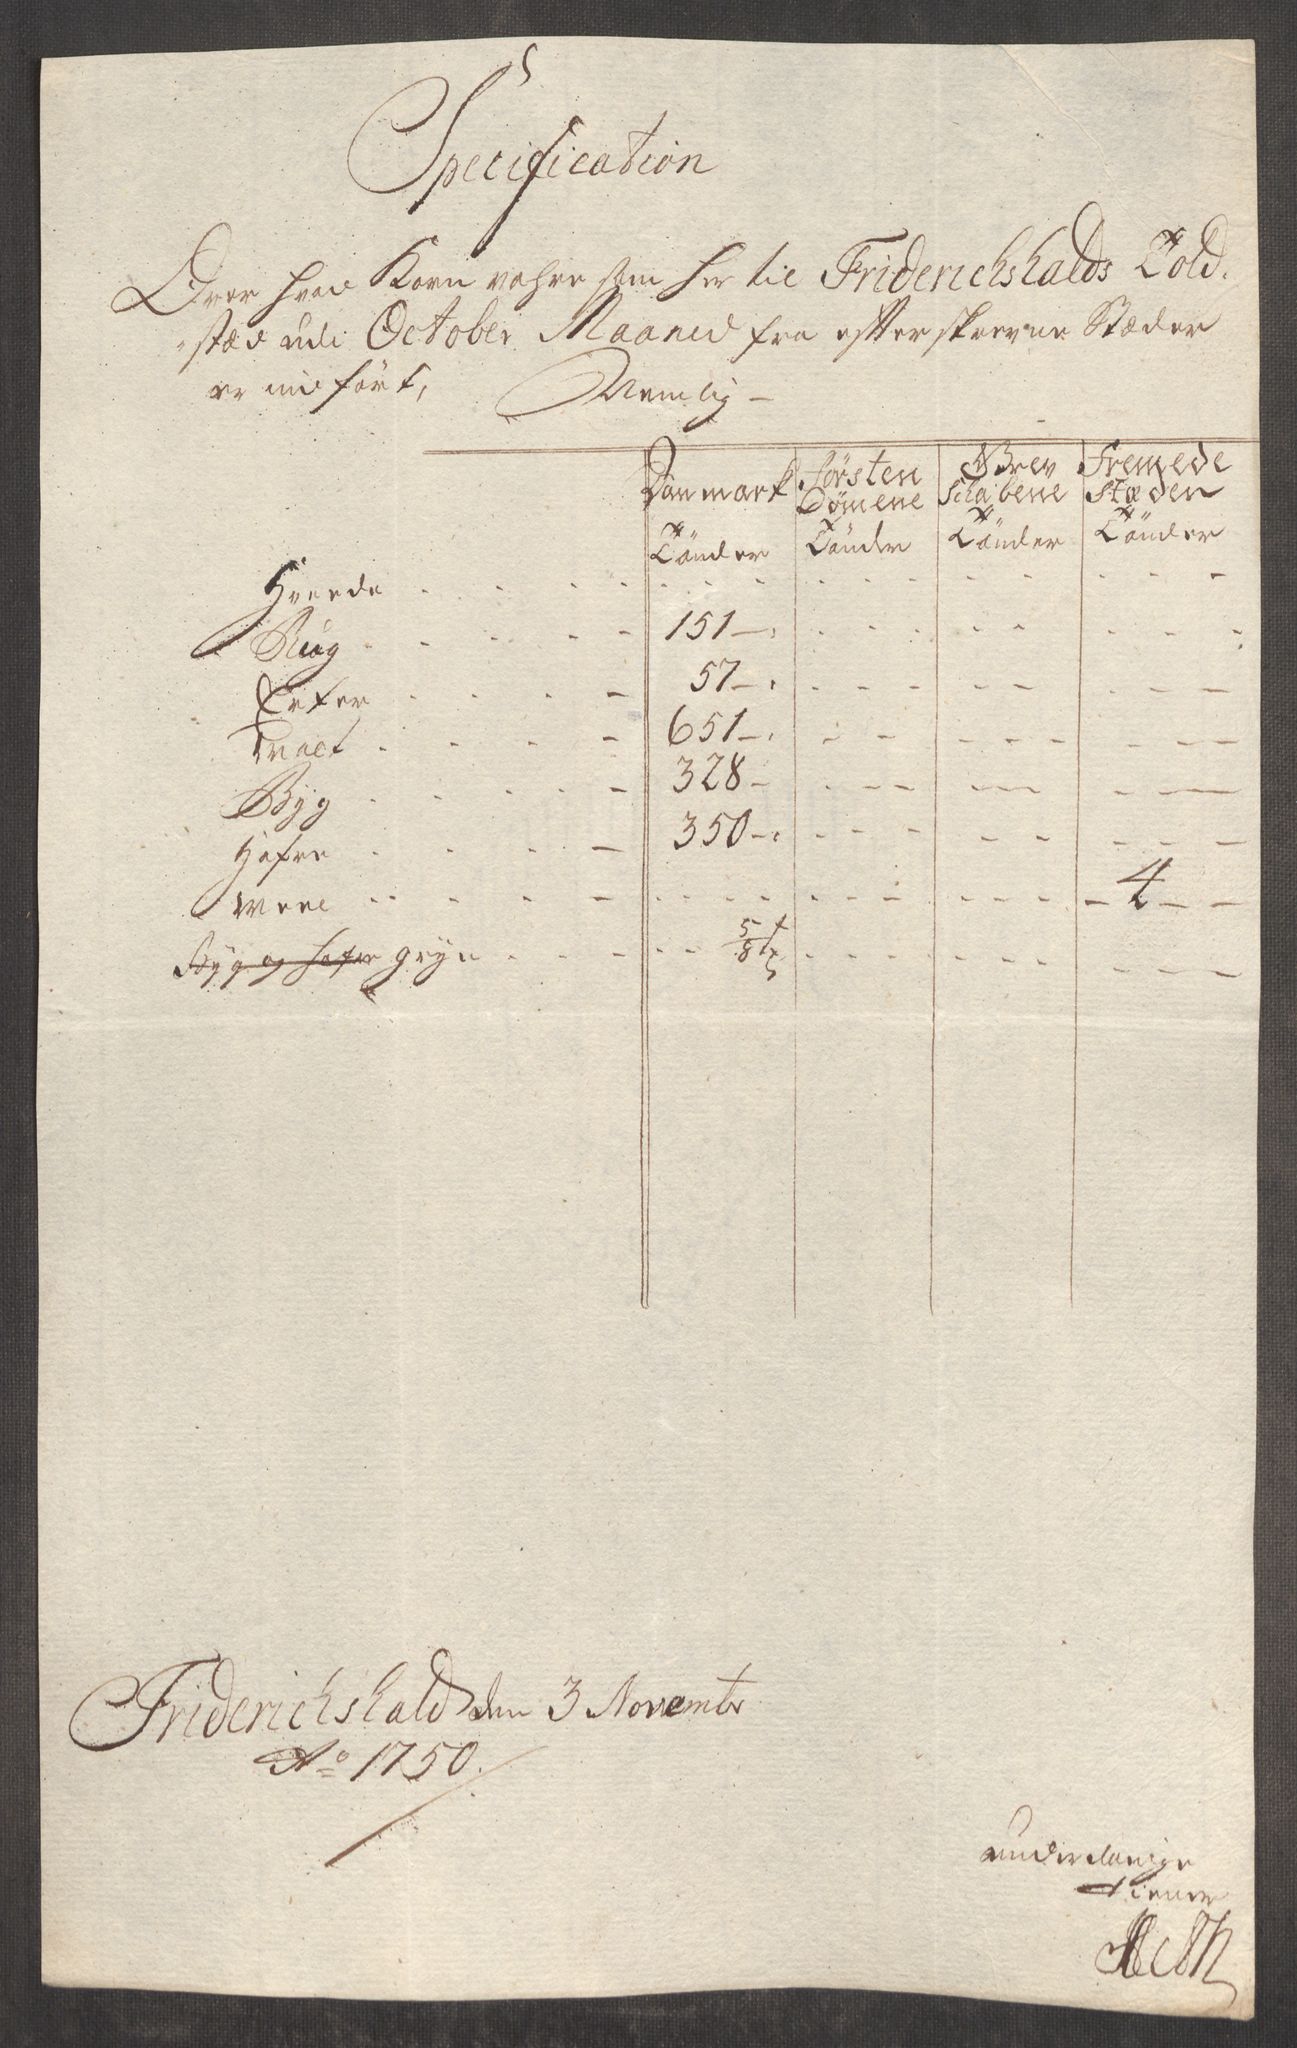 Specification
Over hvad Korn vahre som her til Friderichshalds Told-
stæd udi October Maaned fra efterskrevne Stæder
er indført, Nemlig -
Danmark Försten Dömene Grev Schabene Fremede Stæden
Tönder Tönder Tönder Tönder
Hvede
Rug 151
Erter 57
Malt 651
Byg 328
Hafre 350
Meel 4
Byg og Hafre gryn 5/8 t
Friderichshald den 3 Novembr
Ao 1750.
underdanige
tiener